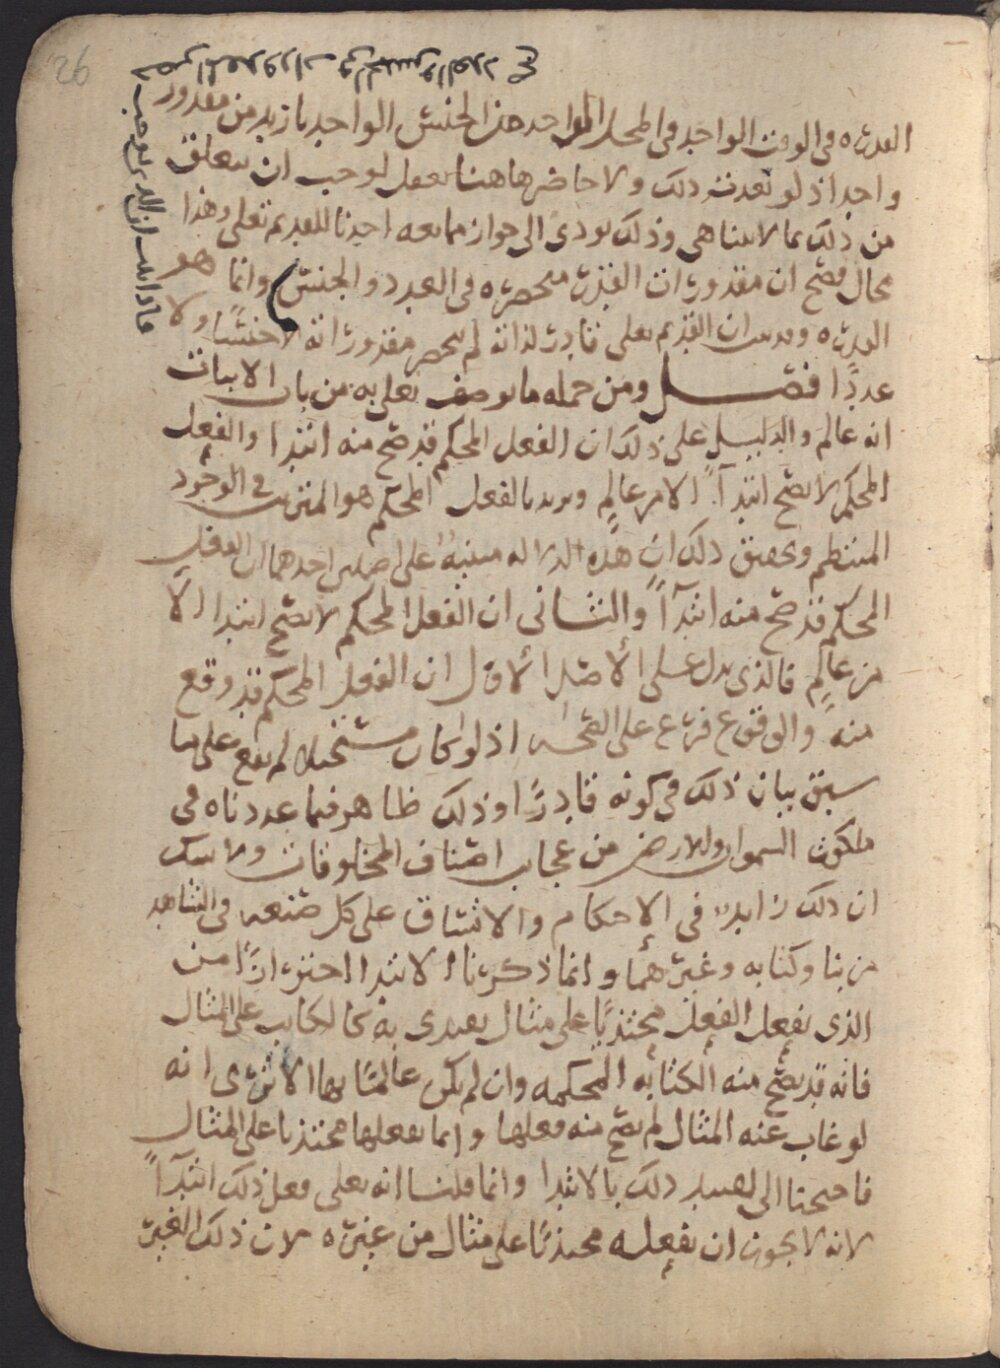 26
القدرة في الوقت الواحد في المحل الواحد من الجنس الواحد بازيد من مقدور
واحد اذ لو تعدت ذلك ولا حاضر هاهنا يعقل لوجب ان يتعلق
من ذلك بما لا يتناهى وذلك يودي الى جواز ممانعة احدنا للقديم تعلى وهذا
محال فصح ان مقدورات القدرة منحصرة في العدد والجنس وانما هو
القدرة وبين ان القديم تعلى قادر لذاته لم تنحصر مقدوراته لا جنسًا ولا
عددًا فصل ومن جملة ما يوصف تعلى به من باب الاثبات
انه عالم والدليل على ذلك ان الفعل المحكم قد صح منه ابتدا والفعل
المحكم لا يصح ابتدآءً الا من عالم ونريد بالفعل المحكم هو المترتب في الوجود
المنتظم وتحقيق ذلك ان هذه الدلالة مبنية على اصلين احدهما ان الفعل
المحكم قد صح منه ابتدآءً والثاني ان الفعل المحكم لا يصح ابتدا الا
من عالم فالذي يدل على الاصل الاول ان الفعل المحكم قد وقع
منه والوقوع فرع على الصحة اذ لو كان مستحيلا لم يقع على ما
سبق بيان ذلك في كونه قادرًا وذلك ظاهر فيما عددناه في
ملكوت السموات والارض من عجايب اصناف المخلوقات ولا شك
ان ذلك زايد في الاحكام والاتساق على كل صنعه في الشاهد
من بنا وكتابه وغيرهما وانما ذكرنا الابتدا احترازًا من
الذي يفعل الفعل محتذيًا على مثال يهتدي به كالكاتب على المثال
فانه قد يصح منه الكتابه المحكمه وان لم يكن عالمًا بها الا ترى انه
لو غاب عنه المثال لم يصح منه فعلها وانما يفعلها محتذيا على المثال
فاحتجنا الى تقييد ذلك بالابتدا وانما قلنا انه تعلى فعل ذلك ابتدآءً
لانه لا يجوز ان يفعله محتذيًا على مثال من غيره لان ذلك الغير